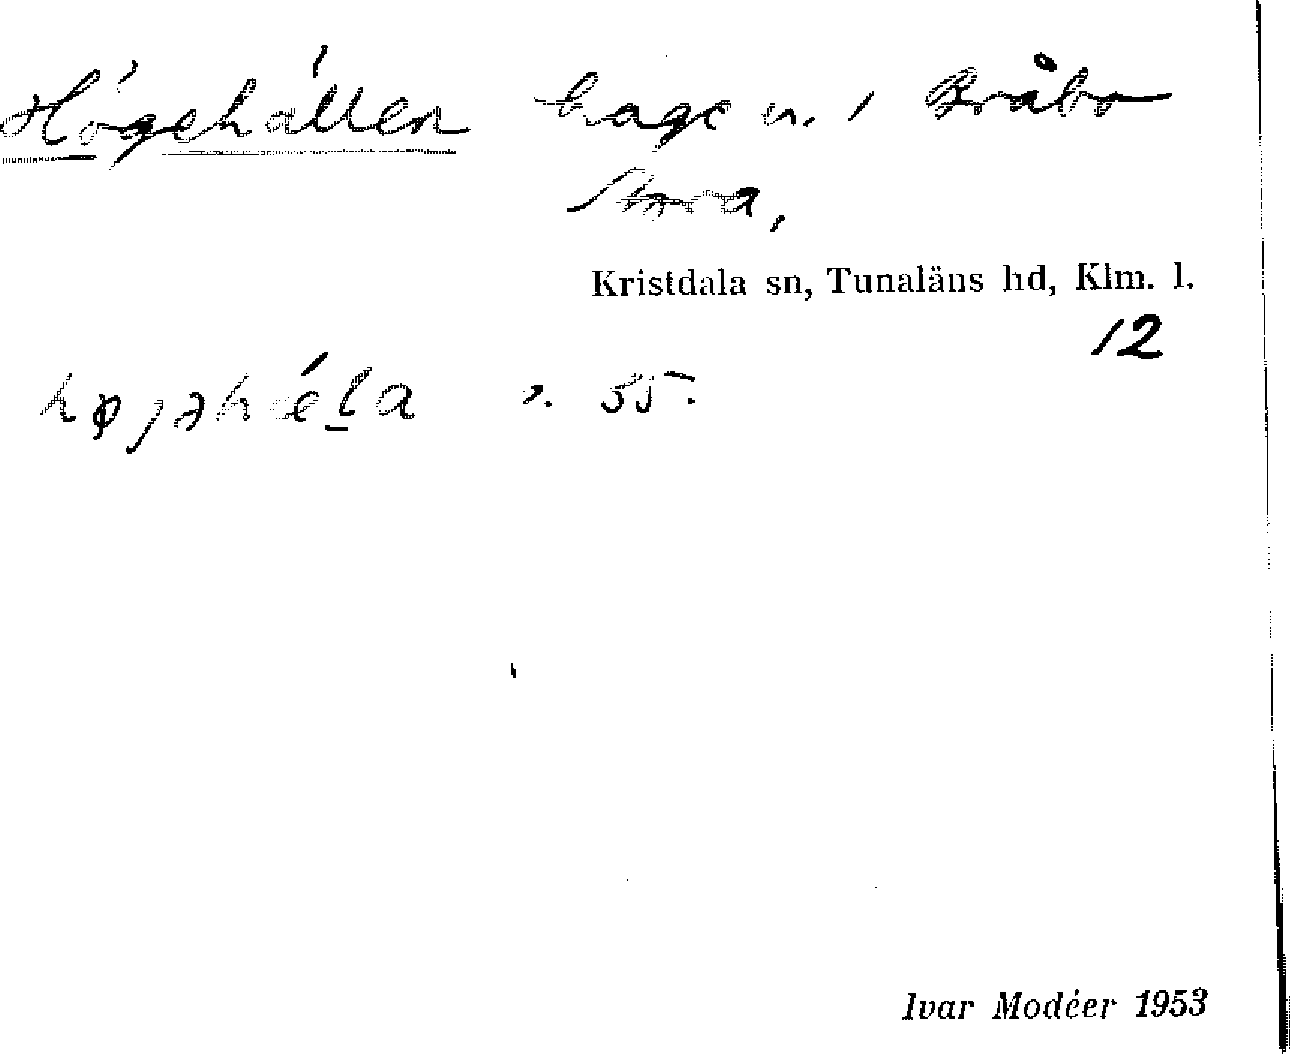 Högehällen hage n. i Bråbo
Stora,
Kristdala sn, Tunaläns hd, Klm. l.
12
s. 55.
Ivar Modéer 1953